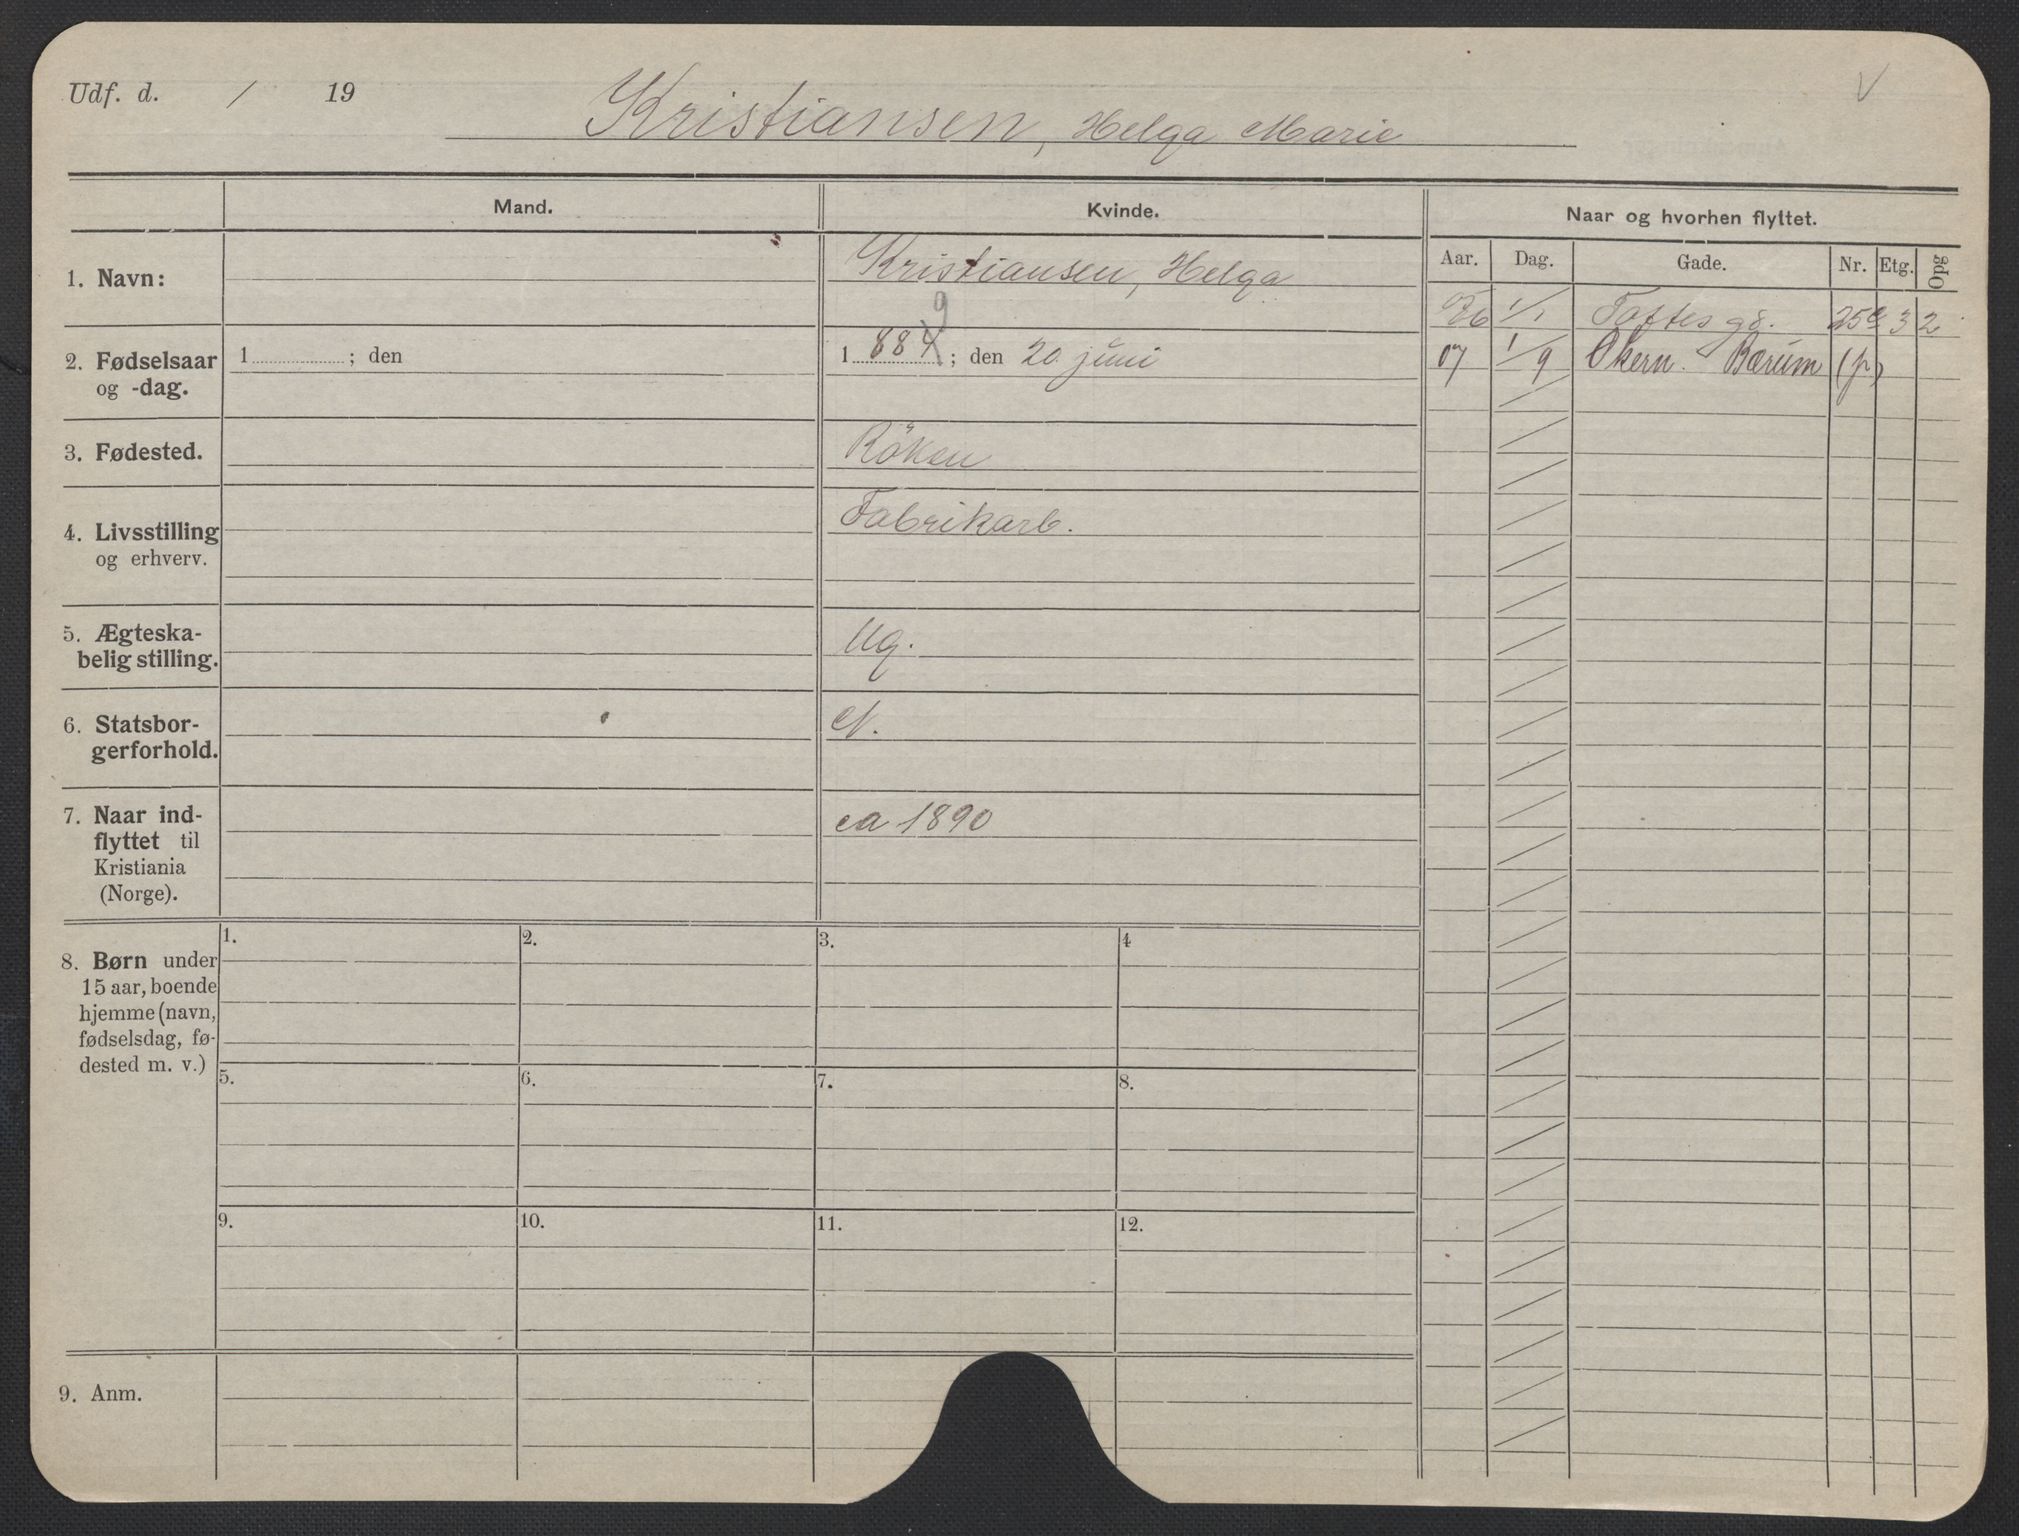 Udf. d. / 19
Kristiansen, Helga Marie
V
Mand.
Kvinde.
Naar og hvorhen flyttet.
Aar. Dag. Gade. Nr. Etg. Opg
1. Navn:
Kristiansen, Helga
06 1/1 Toftes gd. 25c 3 2
9
2. Fødselsaar
og -dag.
1 ; den
1 884 ; den 20. juni
07 1/9 Økern. Bærum (p)
3. Fødested.
Röken
4. Livsstilling
og erhverv.
Fabrikarb.
5. Ægteska-
belig stilling.
Ug.
6. Statsbor-
gerforhold.
N.
7. Naar ind-
flyttet til
Kristiania
(Norge).
ca 1890
8. Børn under
15 aar, boende
hjemme (navn,
fødselsdag, fø-
dested m. v.)
1. 2. 3. 4
5. 6. 7. 8.
9. 10. 11. 12.
9. Anm.